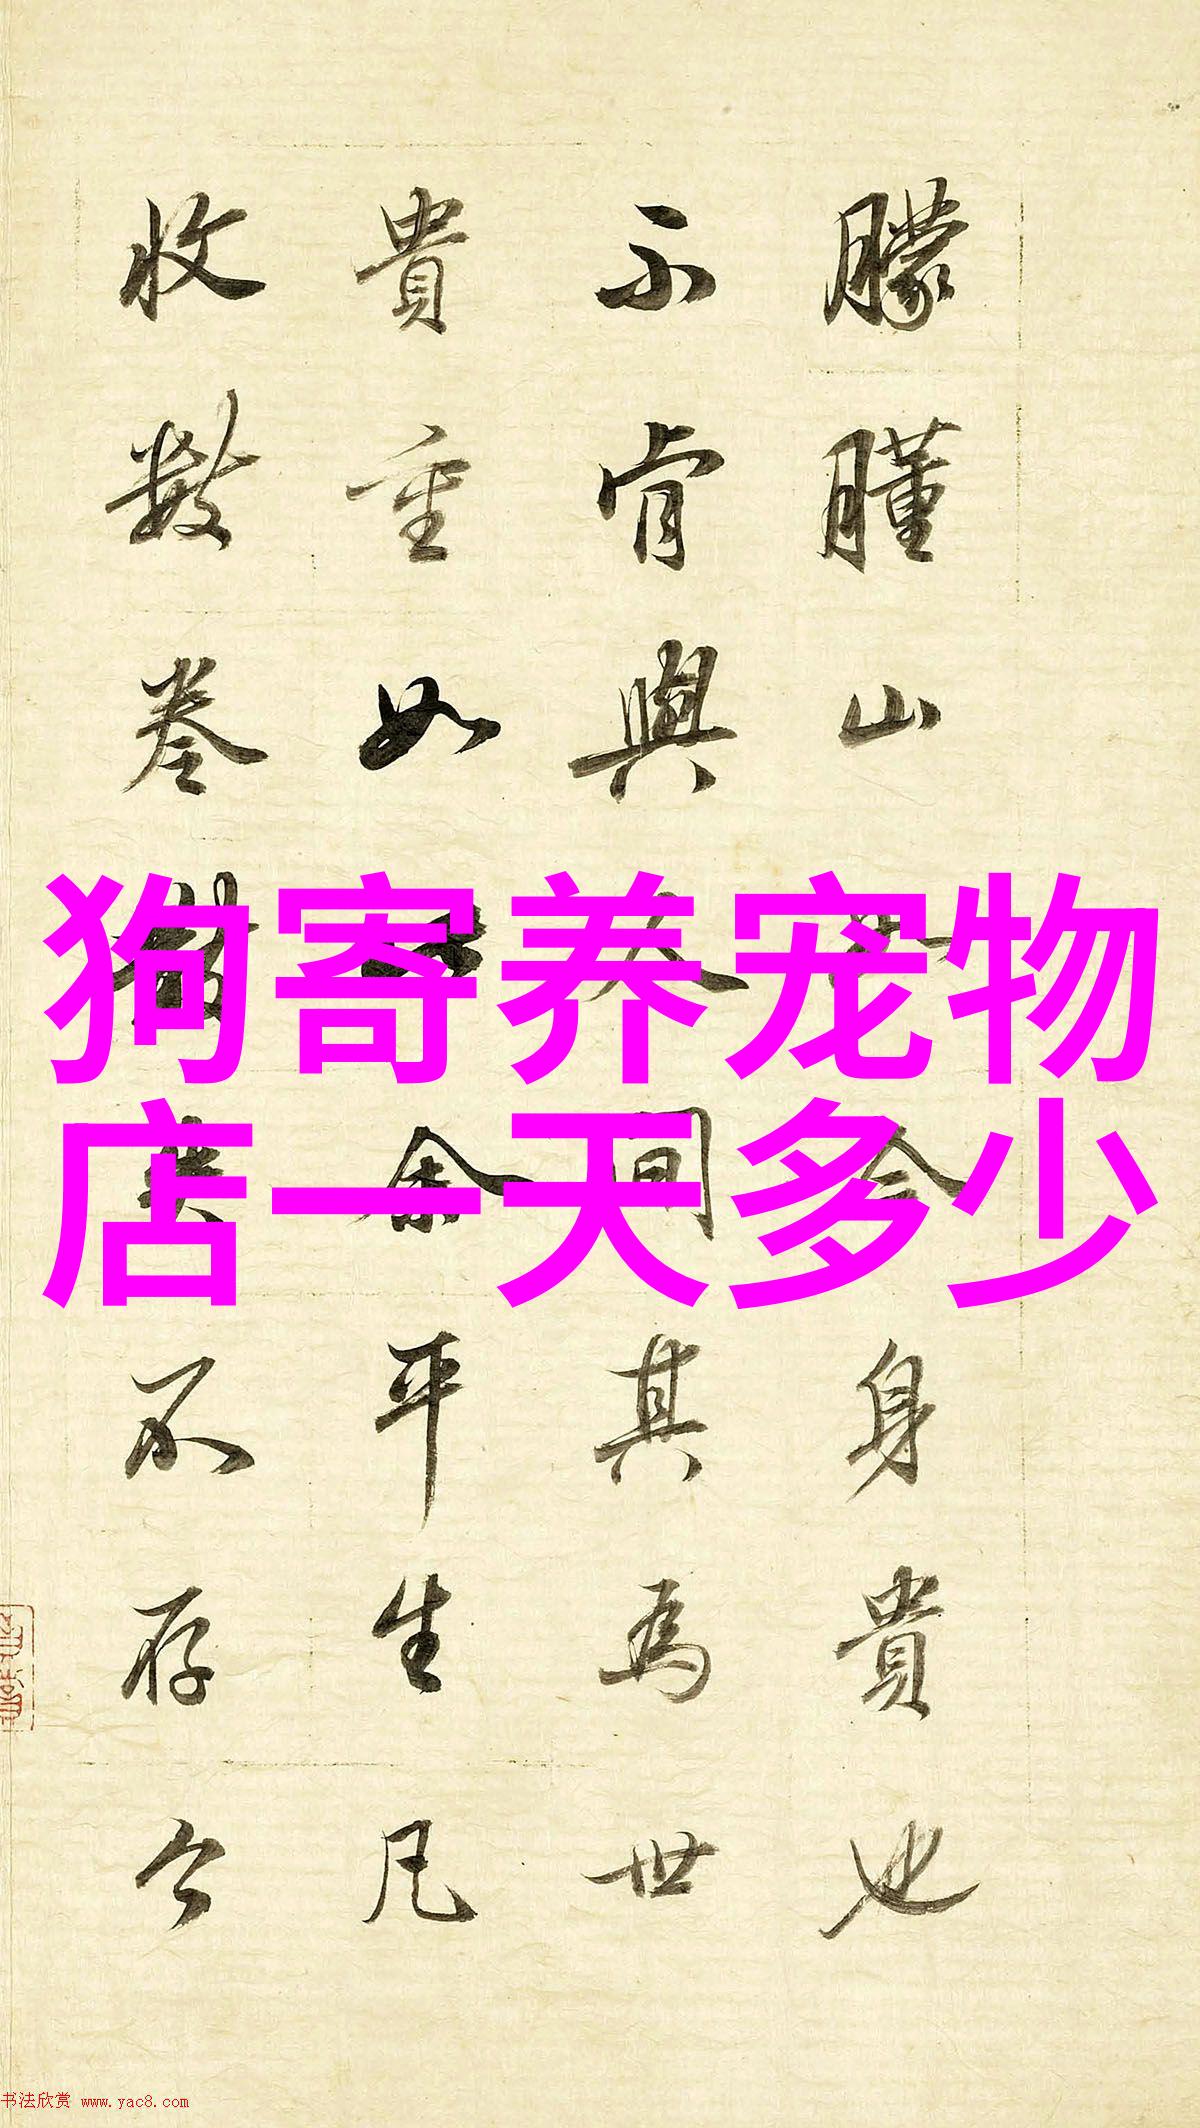 朦 山 身貴也
不肯與人間其為世
貴重如 余平生凡
收數卷 不存今
狗寄养宠物
店一天多少
书法欣赏 www.yac8.com